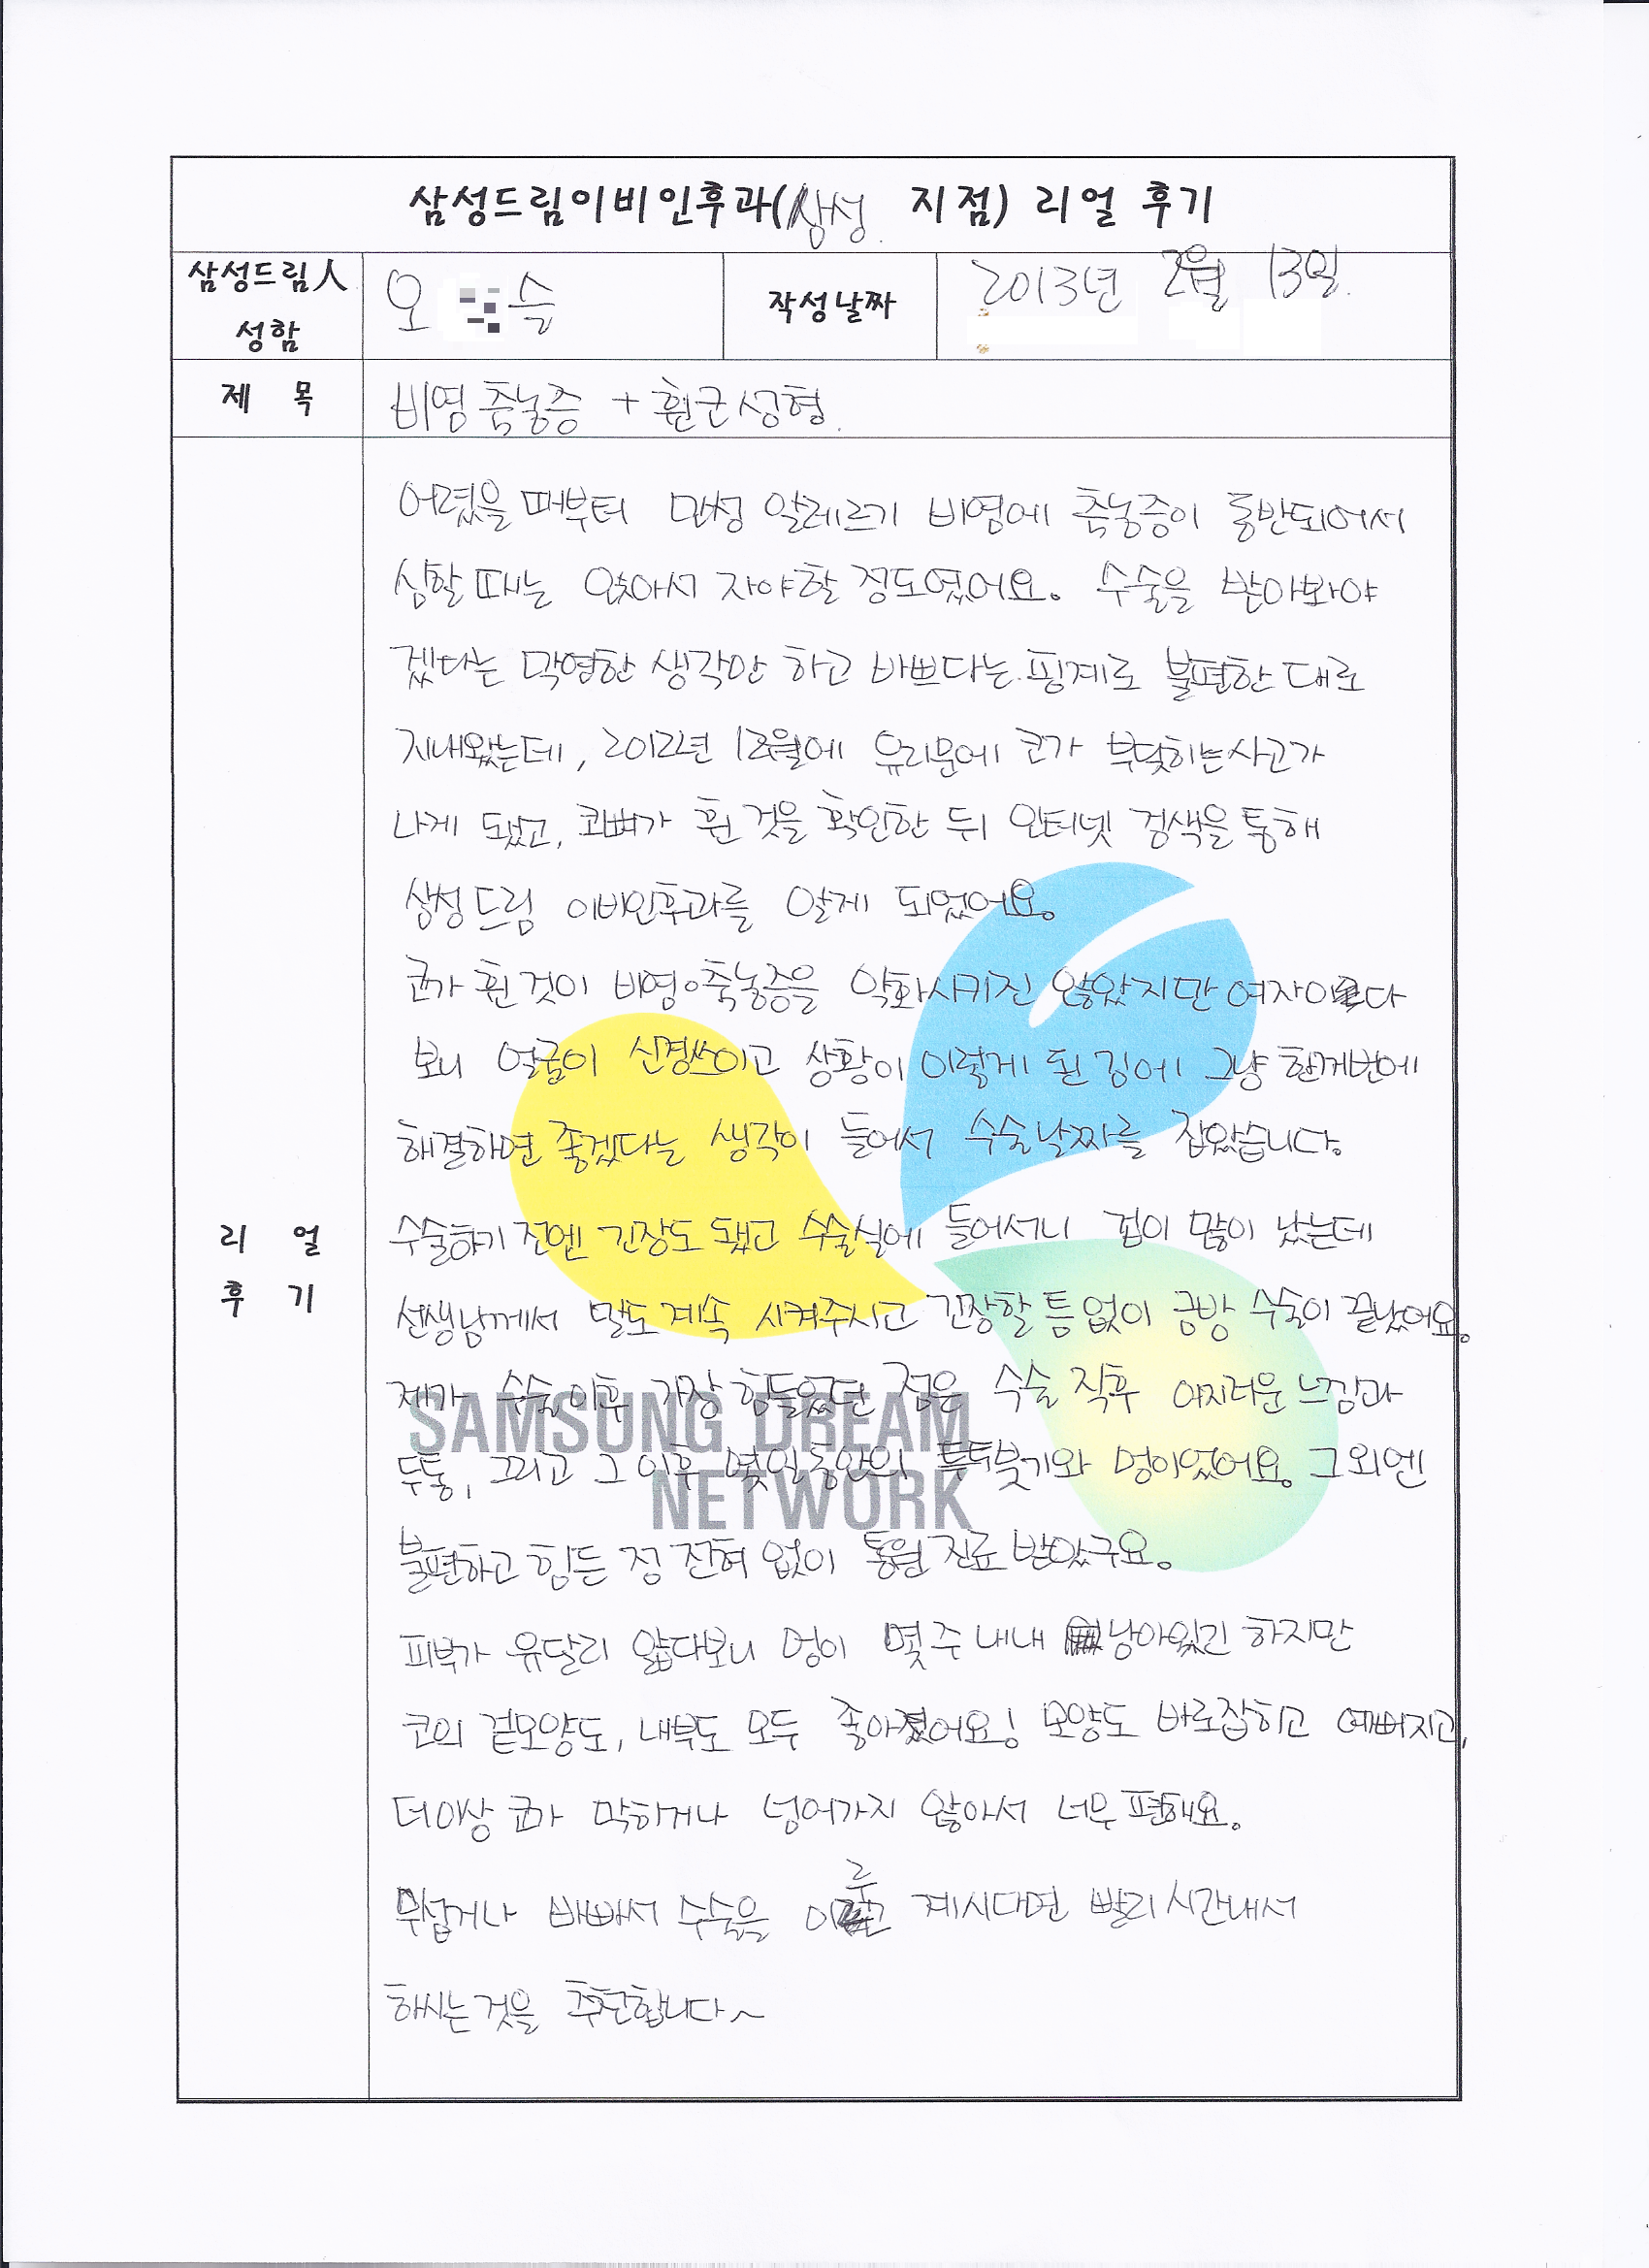 삼성드림이비인후과(삼성 지점) 리얼 후기
삼성드림人 성함
오 승
작성날짜
2013년 2월 13일.
제 목
비염 축농증 + 휜코성형.
리 얼 후 기
어렸을 때부터 만성 알레르기 비염에 축농증이 동반되어서
심할 때는 앉아서 자야할 정도였어요. 수술을 받아봐야
겠다는 막연한 생각만 하고 바쁘다는 핑계로 불편한 대로
지내왔는데, 2012년 12월에 유리문에 코가 부딪히는 사고가
나게 됐고, 코뼈가 휜 것을 확인한 뒤 인터넷 검색을 통해
삼성드림 이비인후과를 알게 되었어요.
코가 휜 것이 비염·축농증을 악화시키진 않았지만 여자이다
보니 얼굴이 신경쓰이고 상황이 이렇게 된 김에 그냥 한꺼번에
해결하면 좋겠다는 생각이 들어서 수술날짜를 잡았습니다.
수술하기 전엔 긴장도 됐고 수술실에 들어서니 겁이 많이 났는데
선생님께서 말도 계속 시켜주시고 긴장할 틈 없이 금방 수술이 끝났어요.
제가 수술이후 가장 힘들었던 점은 수술 직후 어지러운 느낌과
두통, 그리고 그 이후 몇일동안의 붓기와 멍이었어요. 그 외엔
불편하고 힘든 점 전혀 없이 통원 진료 받았구요.
피부가 유달리 얇다보니 멍이 몇 주 내내 남아있긴 하지만
코의 겉모양도, 내부도 모두 좋아졌어요! 모양도 바로잡히고 예뻐지고,
더이상 코가 막히거나 넘어가지 않아서 너무 편해요.
무섭거나 바빠서 수술을 미루고 계시다면 빨리 시간내서
하시는 것을 추천합니다~
SAMSUNG DREAM
NETWORK